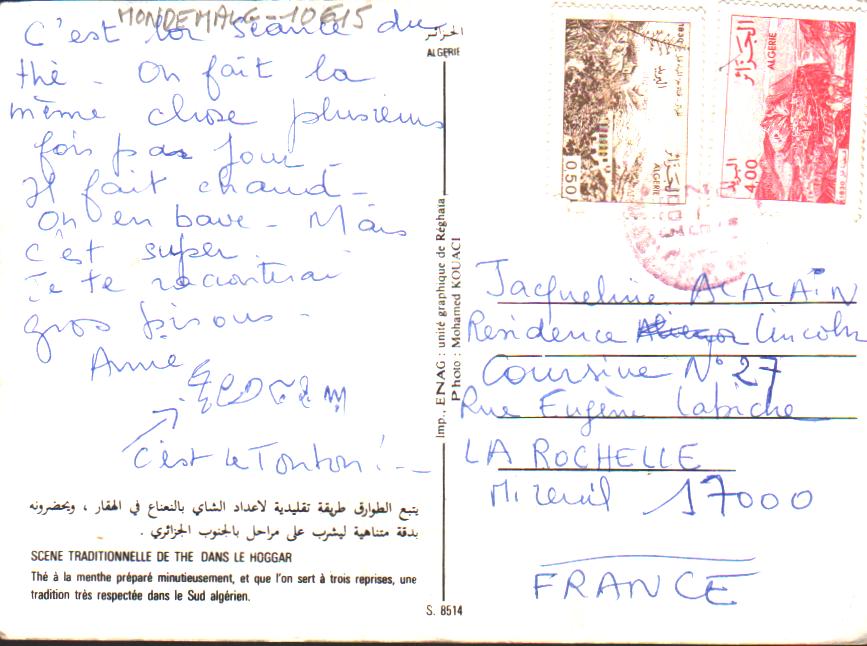 MONDEMALG-10615
C'est la séance du
thé - On fait la
même chose plusieurs
fois par jour -
Il fait chaud -
On en bave - Mais
c'est super.
Je te raconterai
gros bisous -
Anne
c'est le Tonton !
يتبع الطوارق طريقة تقليدية لاعداد الشاي بالنعناع في الهقار ، ويحضرونه
بدقة متناهية ليشرب على مراحل بالجنوب الجزائري .
SCENE TRADITIONNELLE DE THE DANS LE HOGGAR
Thé à la menthe préparé minutieusement, et que l'on sert à trois reprises, une
tradition très respectée dans le Sud algérien.
الجزائر
ALGERIE
Imp., ENAG : unité graphique de Réghaïa
Photo : Mohamed KOUACI
S. 8514
1830
البريد
الجزائر
ALGERIE
0.50
الجزائر
ALGERIE
البريد
4,00
Jacqueline ALALAIN
Résidence Lincoln
Coursive N° 27
Rue Eugène Labiche
LA ROCHELLE
Mireuil 17000
FRANCE